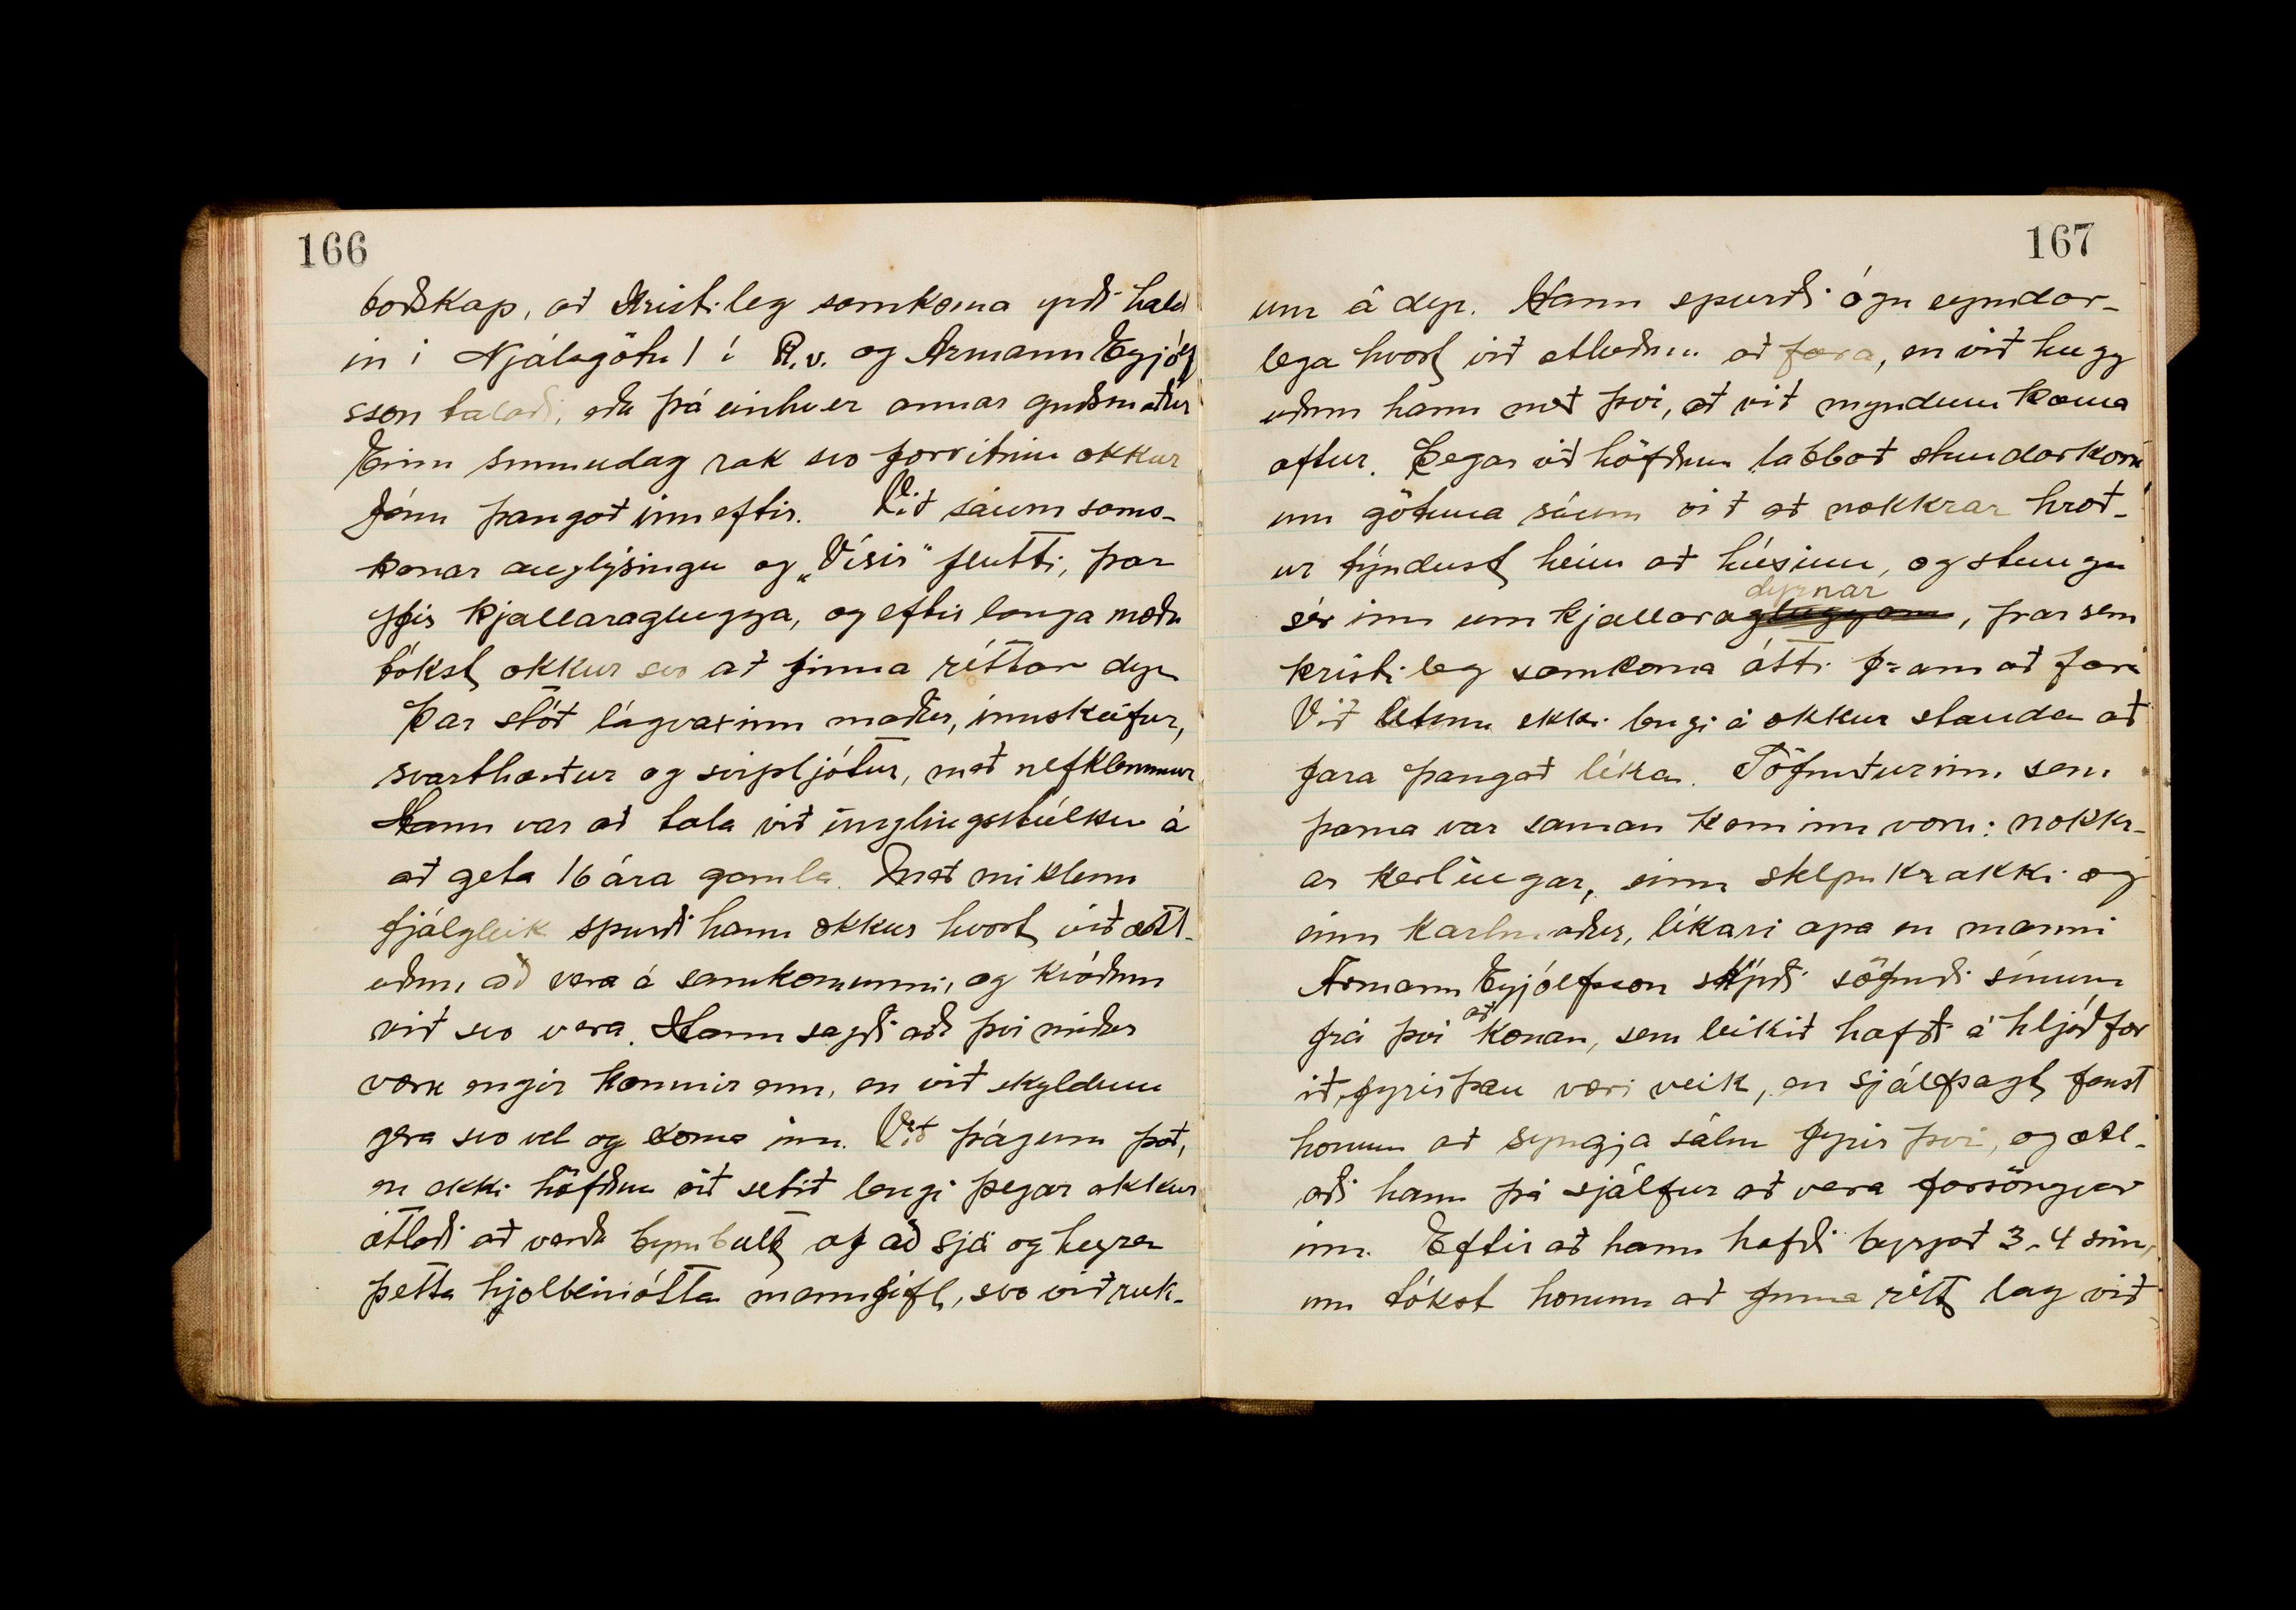 166
boðskap, að Kristileg samkoma yrði hald
in i Njálsgötu 1 i R.v. og Armann Eyjólf
sson talaði, eða þá einhver annar guðsmaður
Einn sunnudag rak svo forvitnin okkur
Jónu þangað inneftir. Við sáum sams-
konar auglýsingu og „Vísir" flutti, þar
yfir kjallaraglugga, og eftir langa mæðu
tókst okkur svo að finna réttar dyr
Þar stóð lágvaxinn maður, innskeifur,
svarthærður og svipljótur, með nefklemmur
Hann var að tala við únglingsstúlku á
að geta 16 ára gamla. Með miklum
fjálgleik spurði hann okkur hvort við ætl-
uðum að vera á samkomunni, og kváðum
við svo vera. Hann sagði að því miður
væru engir komnir enn, en við skyldum
gera svo vel og koma inn. Við þágum það,
en ekki höfðum við setið lengi þegar okkur
ætlaði að verða bumbult af að sjá og heyra
þetta hjólbeinótta mannfífl, svo við ruk-
167
um á dyr. Hann spurði ógn eymdar-
lega hvort við ætluðum að fara, en við hugg
uðum hann með því, að við myndum koma
aftur. Þegar við höfðum labbað stundarkorn
um götuna sáum við að nokkrar hræð-
ur týndust heim að húsinu, og stungu
dyrnar
sér inn um kjallaragluggann, þar sem
kristileg samkoma átti fram að fara
Við létum ekki lengi á okkur standa að
fara þangað líka. Söfnuðurinn sem
þarna var saman kominn voru: nokkr-
ar kerlingar, einn stelpukrakki og
einn karlmaður, líkari apa en manni
Armann Eyjólfsson skýrði söfnuði sínum
að
frá því konan, sem leikið hafði á hljóðfær
ið, fyrir þau væri veik, en sjálfsagt fanst
honum að syngja sálm fyrir því, og ætl-
aði hann þá sjálfur að vera forsöngvar
inn. Eftir að hann hafði byrjað 3-4 sinn,
um tókst honum að finna rétt lag við